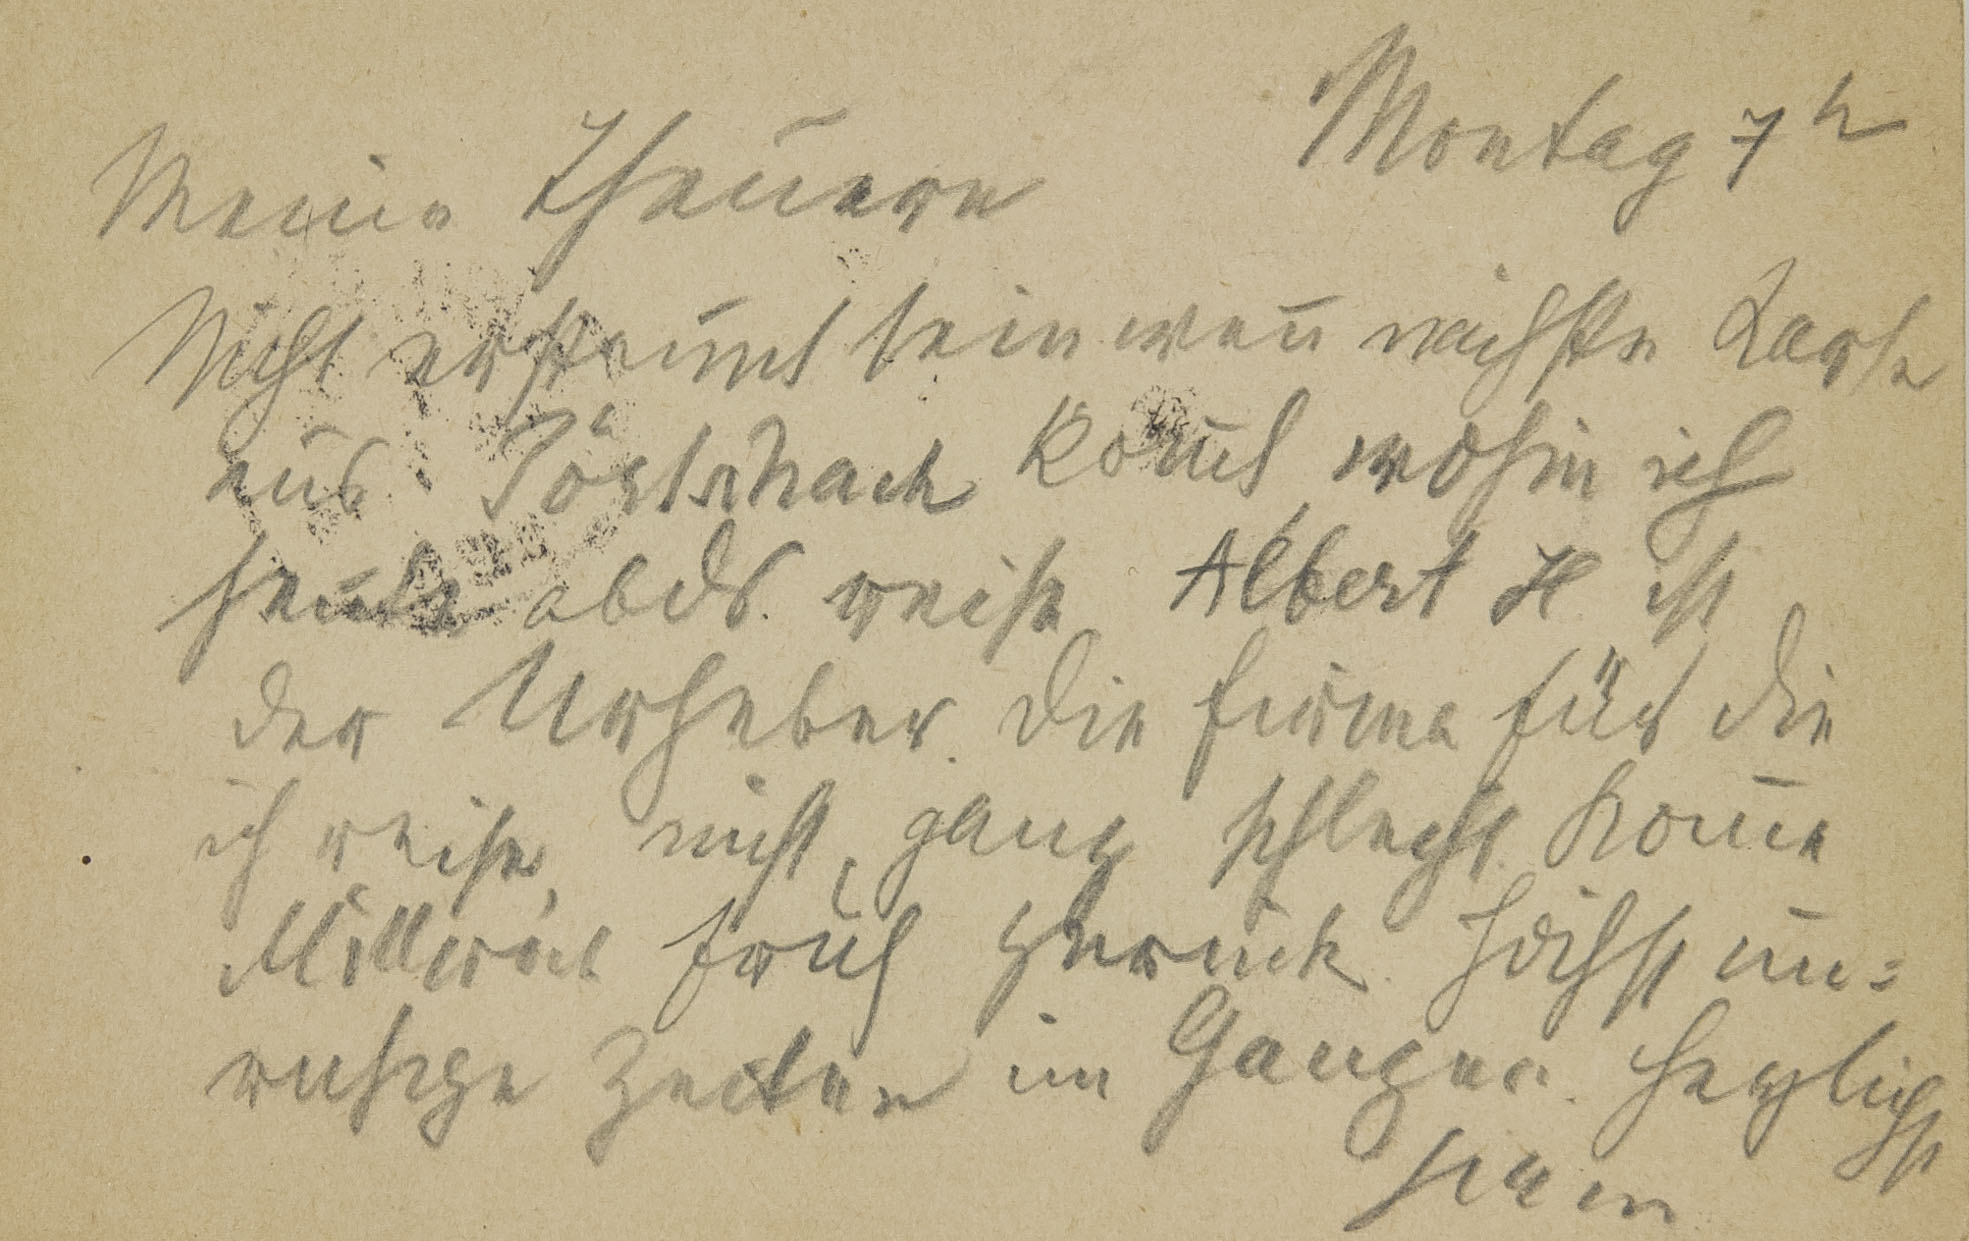 Montag 7h
Meine Theuere
Nicht erstaunt sein wen̄ nächste Karte
aus Pörtschach kom̄t, wohin ich
heute abds. reise. Albert H ist
der Urheber. Die Firma für die
ich reise, nicht ganz schlecht. Kom̄e
Mittwoch früh zurück. Höchst un=
ruhige Zeiten im Ganzen. Herzlichst